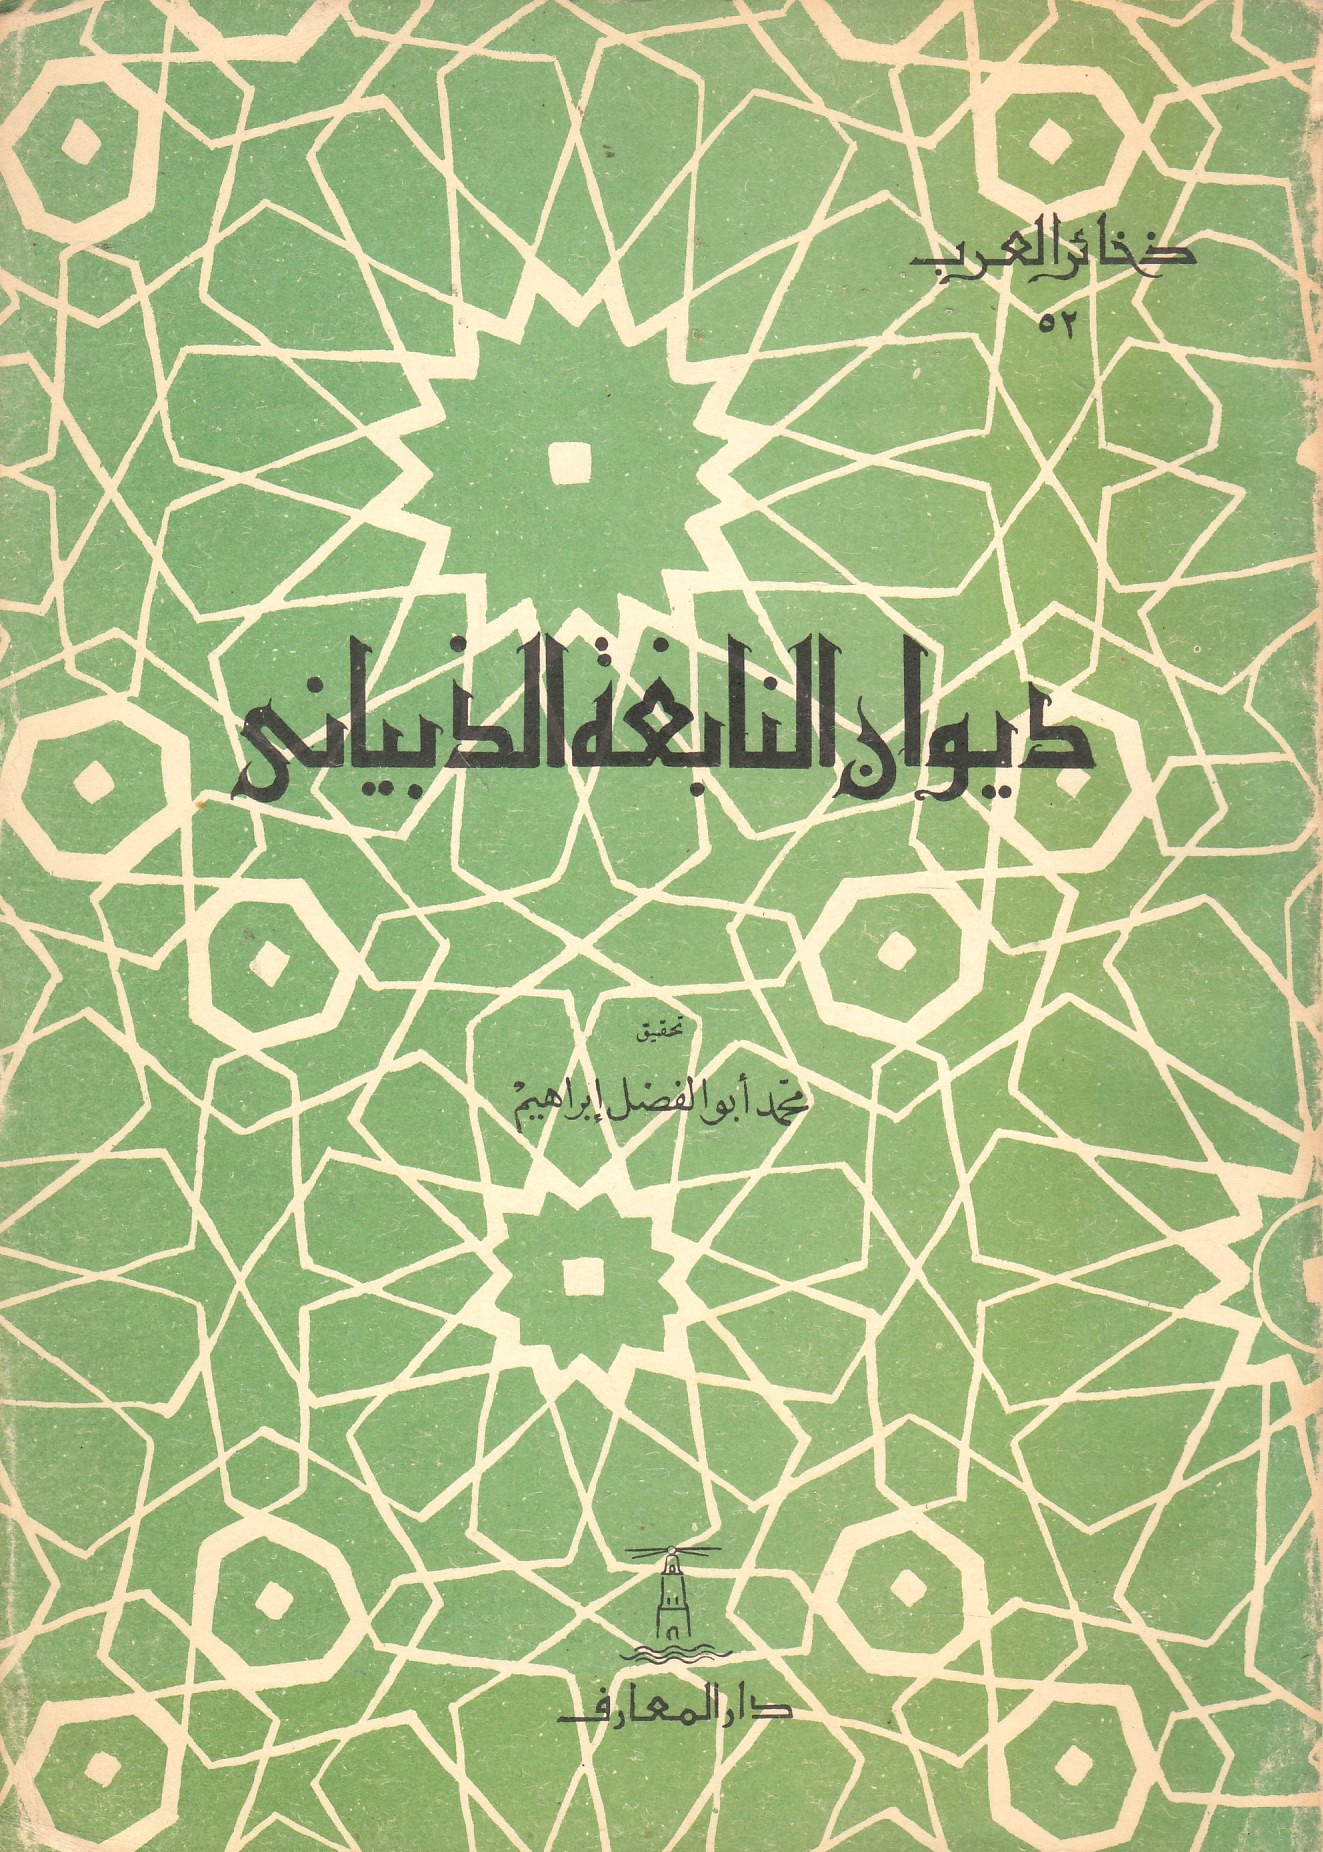 ذخائر العرب
٥٢
ديوان النابغة الذبياني
تحقيق
محمّد أبو الفضل إبراهيم
دار المعارف